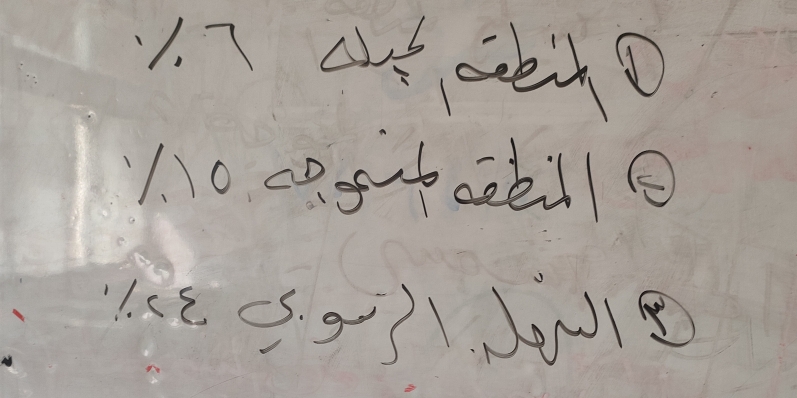 ① المنطقه الجبليه ٦٪
② المنطقه المتموجه ١٥٪
③ السهل الرسوبي ٢٤٪